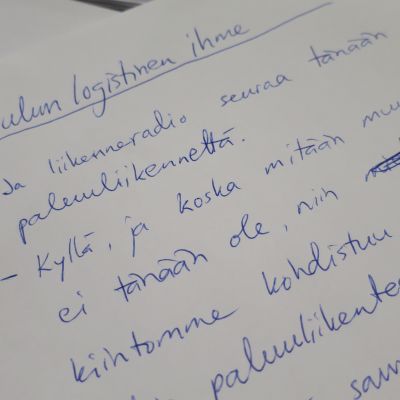 ulun logistinen ihme
Ja liikenneradio seuraa tänään
paluuliikennettä.
- Kyllä, ja koska mitään muu
ei tänään ole, niin
kiintomme kohdistuu
paluuliikentee